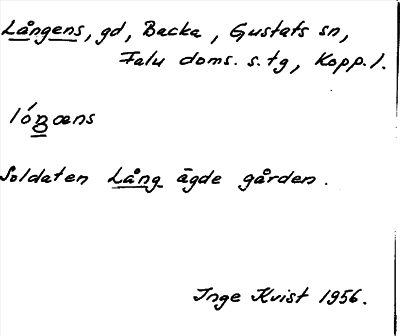 Långens, gd, Backa, Gustafs sn,
Falu doms. s. tg, Kopp. l.
lóŋæns
Soldaten Lång ägde gården.
Inge Kvist 1956.